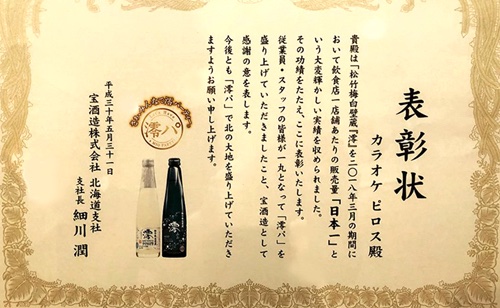 表彰状
カラオケ ピロス殿
貴殿は「松竹梅白壁蔵『澪』を二〇一八年三月の期間に
おいて飲食店一店舗あたりの販売量「日本一」と
いう大変輝かしい実績を収められました。
その功績をたたえ、ここに表彰いたします。
従業員・スタッフの皆様が一丸となって「澪パ」を
盛り上げていただきましたこと、宝酒造として
感謝の意を表します。
今後とも「澪パ」で北の大地を盛り上げていただき
ますようお願い申し上げます。
澪パ。
澪
澪
平成三十年五月三十一日
宝酒造株式会社 北海道支社
支社長 細川 潤